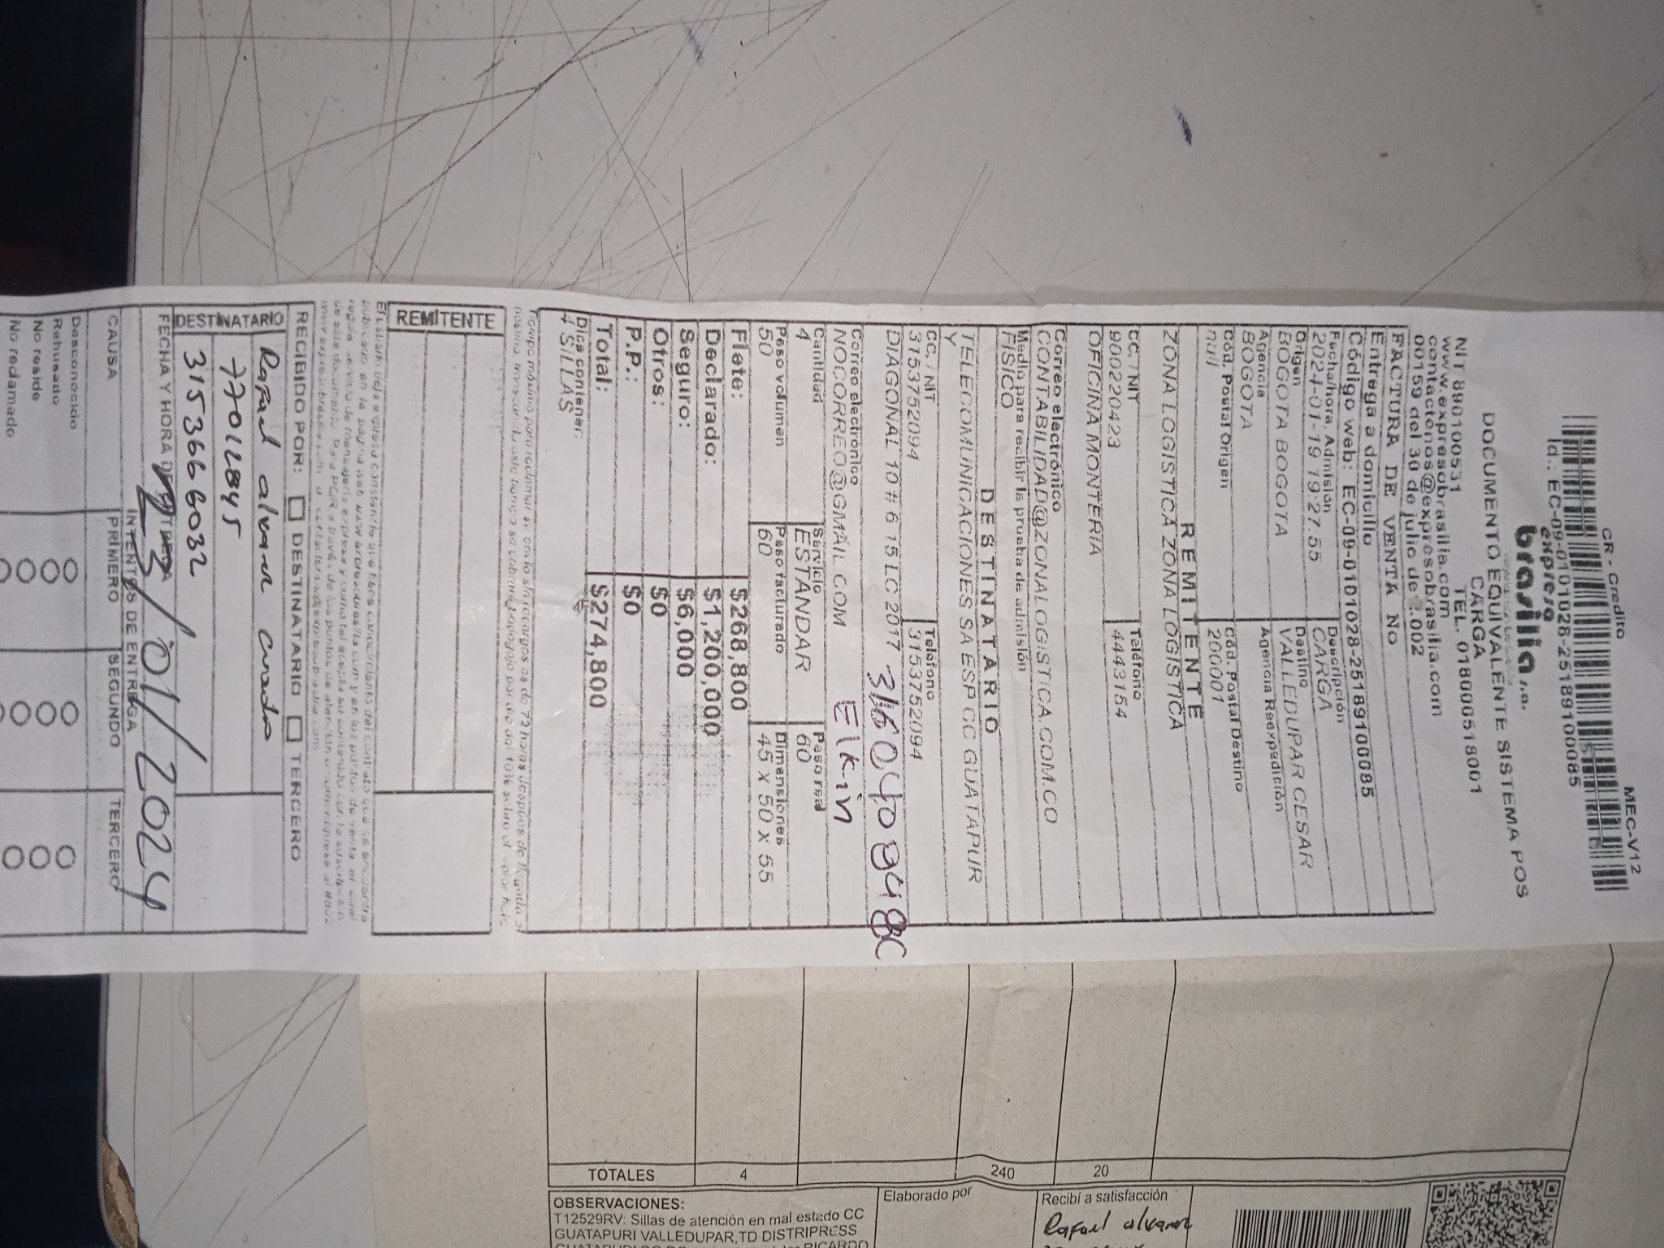 CR - Credito
MEC-V12
Id.: EC-09-0101028-2518910085
expreso
brasilia s.a.
DOCUMENTO EQUIVALENTE SISTEMA POS
CARGA
NIT 890100531 TEL. 018000518001
www.expresobrasilia.com
contactenos@expresobrasilia.com
00159 del 30 de julio de 2.002
FACTURA DE VENTA No
Entrega a domicilio
Código web: EC-09-0101028-2518910085
Fecha/hora. Admisión Descripción
2024-01-19 19:27:55 CARGA
Origen Destino
BOGOTA BOGOTA VALLEDUPAR CESAR
Agencia Agencia Reexpedición
BOGOTA
Cód. Postal Origen Cód. Postal Destino
null 200001
REMITENTE
ZONA LOGISTICA ZONA LOGISTICA
CC / NIT Teléfono
900220423 4443154
OFICINA MONTERIA
Correo electrónico
CONTABILIDAD@ZONALOGISTICA.COM.CO
Medio para recibir la prueba de admisión
FISICO
DESTINATARIO
TELECOMUNICACIONES SA ESP CC GUATAPUR
Y
CC. / NIT Teléfono
3153752094 3153752094
DIAGONAL 10 # 6 15 LC 2017
Correo electrónico
NOCORREO@GMAIL.COM Elkin
Cantidad Servicio Peso real
4 ESTANDAR 60
Peso volumen Peso facturado Dimensiones
50 60 45 X 50 X 55
Flete: $268,800
Declarado: $1,200,000
Seguro: $6,000
Otros: $0
P.P.: $0
Total: $274,800
Dice contener:
4 SILLAS
REMITENTE
RECIBIDO POR: DESTINATARIO TERCERO
DESTINATARIO
Rafael alvarez
77012845
3153666032
FECHA Y HORA DE ENTREGA
23/01/2024
INTENTOS DE ENTREGA
CAUSA PRIMERO SEGUNDO TERCERO
Desconocido
Rehusado
No reside
No reclamado
TOTALES 4 240 20
OBSERVACIONES:
T12529RV: Sillas de atención en mal estado CC
GUATAPURI VALLEDUPAR,TD DISTRIPRESS
RICARDO
Elaborado por
Recibi a satisfacción
Rafael alvarez